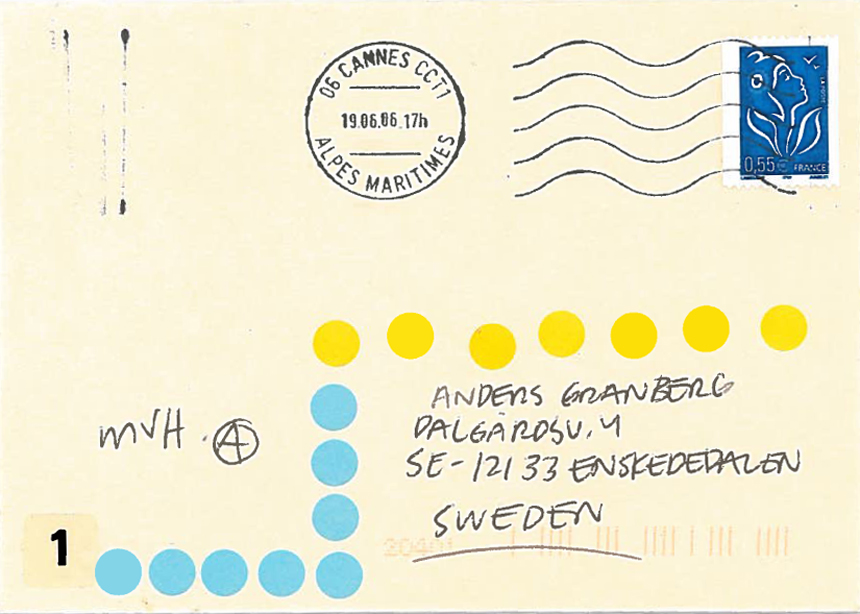 06 CANNES CCT1
19.06.06_17h
ALPES MARITIMES
LA POSTE
0,55 € FRANCE
ANDERS GRANBERG
DALGÅRDSV. 4
SE-121 33 ENSKEDEDALEN
SWEDEN
MVH. A
20401
1